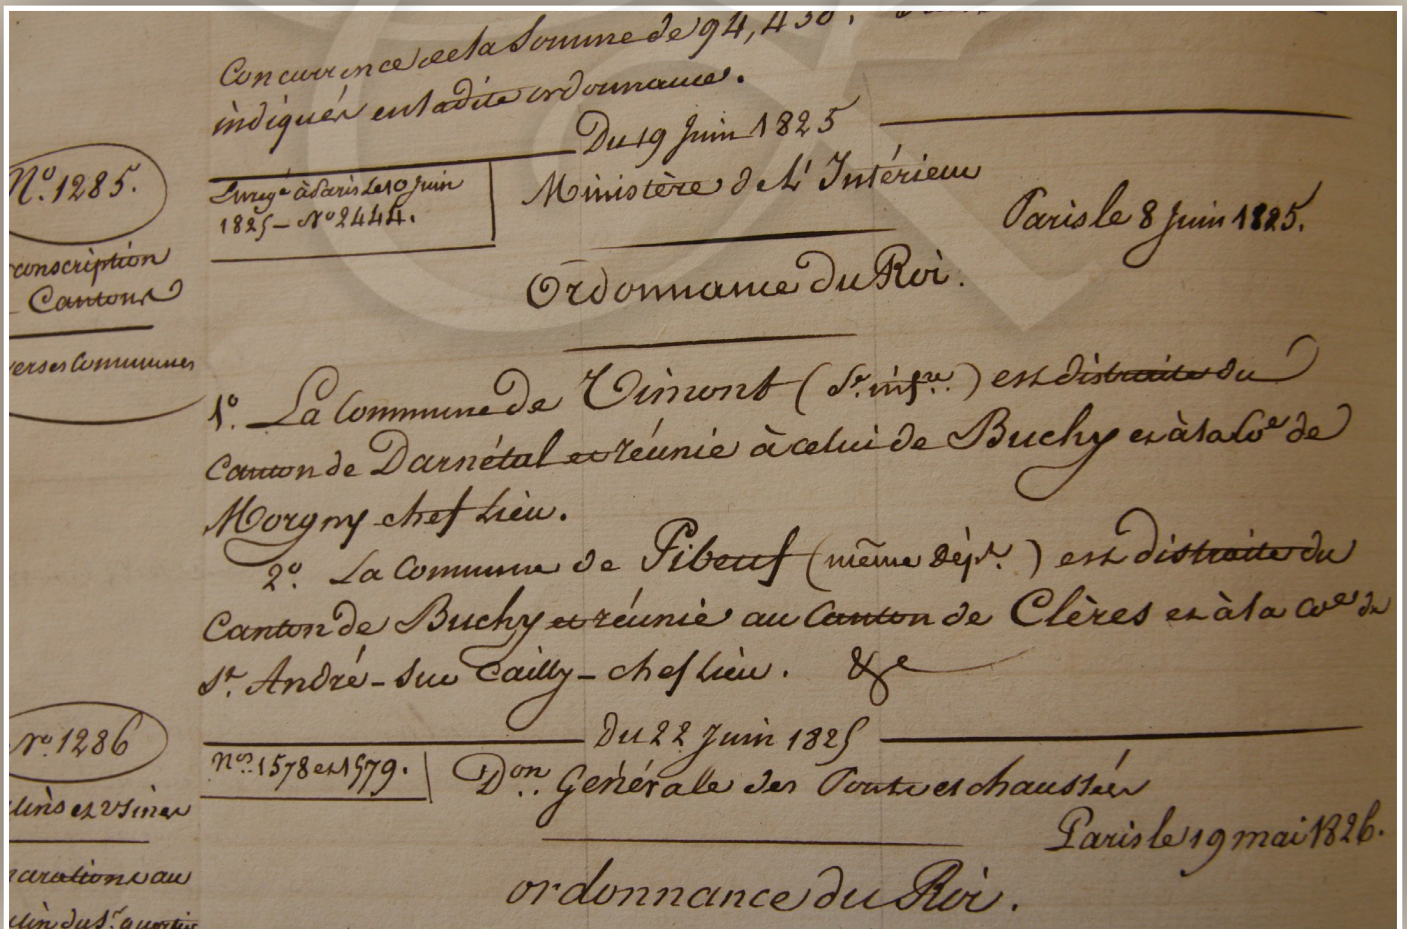 Concurrence de la Somme de 94,450.
indiqués en ladite ordonnance.
Du 19 Juin 1825
N.º 1285.
Enreg.é à Paris Le 10 Juin
1825 – N.º 2444.
Ministère de L'Intérieur
Paris le 8 Juin 1825.
conscription
Cantons
Ordonnance du Roi.
verses Communes
1.º La Commune de Vimont (S.e inf.re) est distraite du
Canton de Darnétal et réunie à celui de Buchy et à la Co.e de
Morgny chef Lieu.
2.º La Commune de Pibeuf (même dép.t) est distraite du
Canton de Buchy et réunie au Canton de Clères et à la Co.e de
S.t André-sur Cailly – chef Lieu. &.e
N.º 1286
du 22 Juin 1825
N.os 1578 et 1579.
D.on Générale des Ponts et chaussées
lins et usines
Paris le 19 mai 1826.
parations au
ordonnance du Roi.
lin du S.r